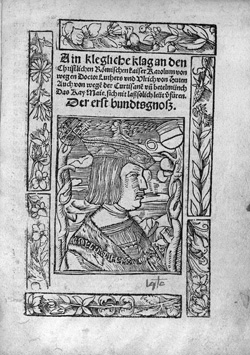 Ain klegliche klag an den
Christlichen Römischen kaiser Karolum von
wegen Doctor Luthers vnd Vlrich von Huten
Auch von wegẽ der Curtisanẽ vñ betelmünch
Das Kay. Maie. sich nit laß sollich leüt verfüren.
Der erst bundtsgnosz.